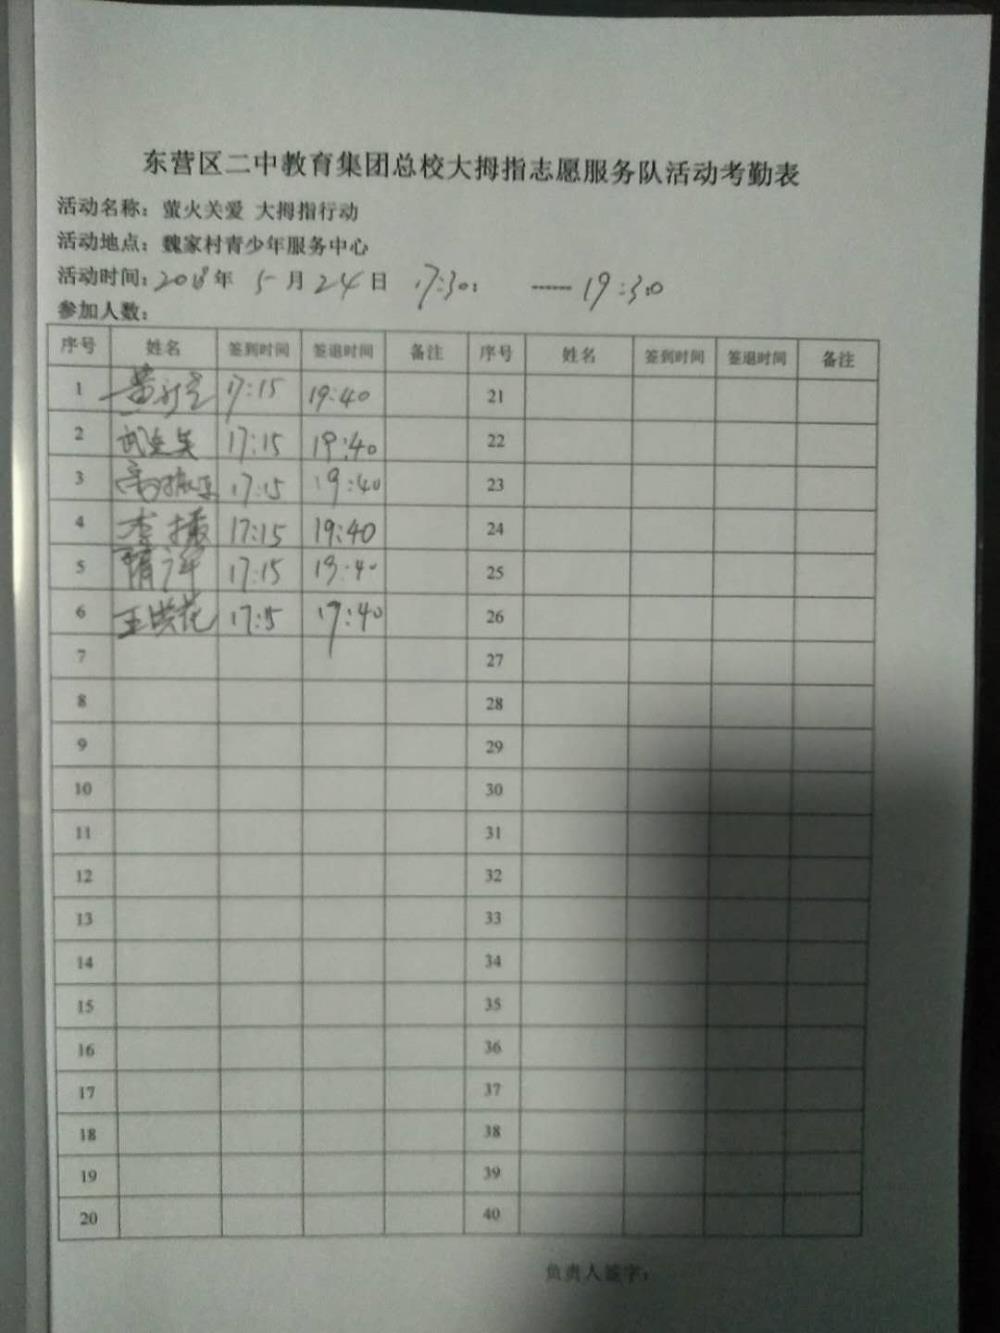 东营区二中教育集团总校大拇指志愿服务队活动考勤表
活动名称：萤火关爱 大拇指行动
活动地点：魏家村青少年服务中心
活动时间：2018年 5月24日 17:30： ----- 19:30
参加人数：
序号 姓名 签到时间 签退时间 备注 序号 姓名 签到时间 签退时间 备注
1 17:15 19:40 21
2 17:15 19:40 22
3 17:15 19:40 23
4 李 17:15 19:40 24
5 隋 17:15 19:40 25
6 王洪花 17:15 19:40 26
7 27
8 28
9 29
10 30
11 31
12 32
13 33
14 34
15 35
16 36
17 37
18 38
19 39
20 40
负责人签字：